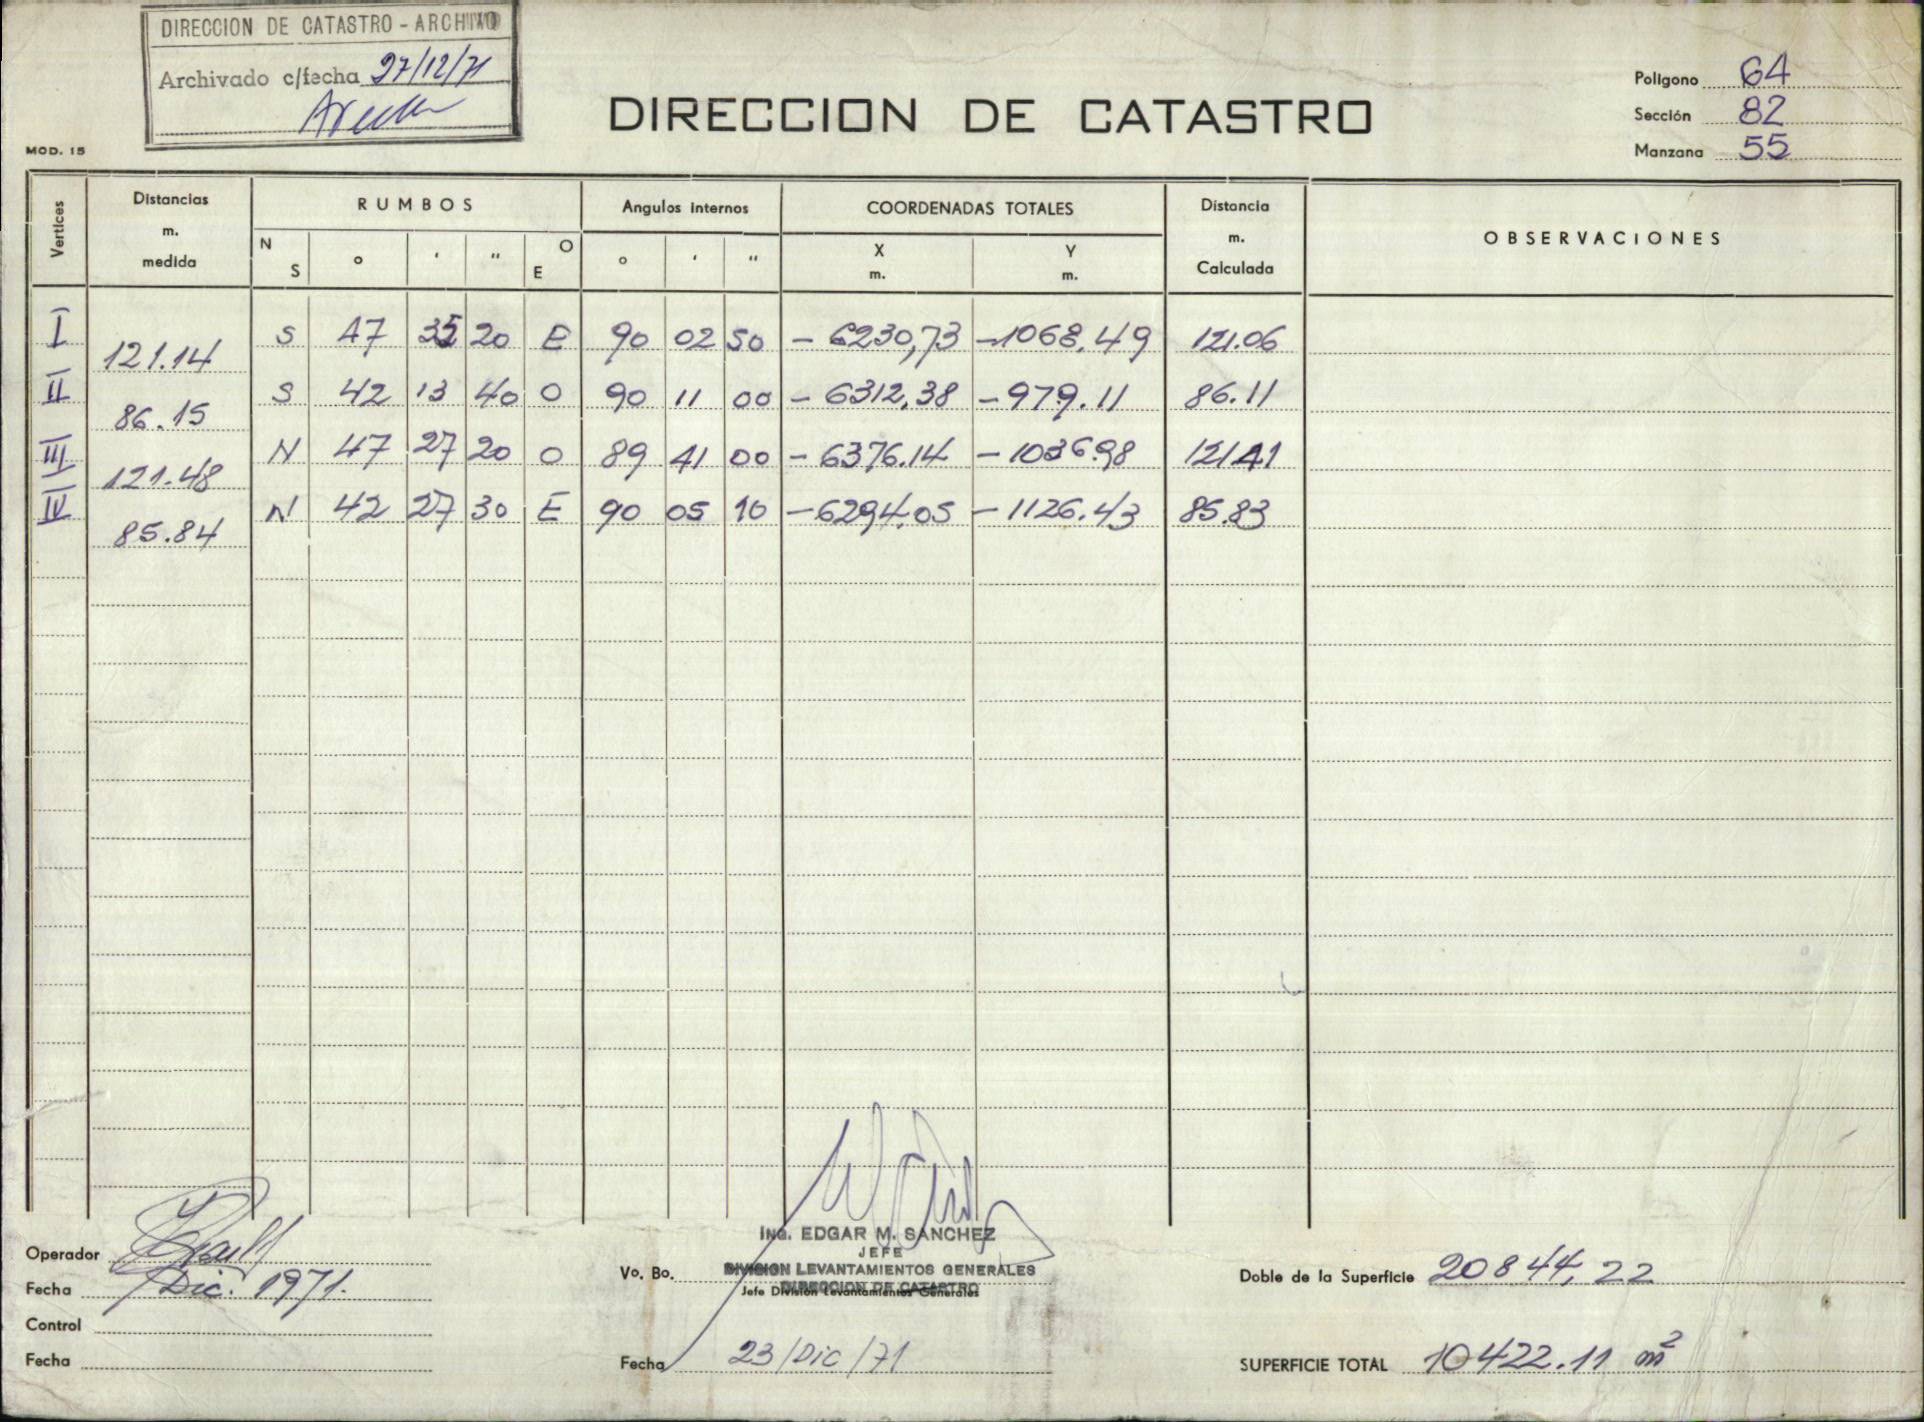 DIRECCION DE CATASTRO - ARCHIVO
Archivado c/fecha 27/12/71
DIRECCION DE CATASTRO
Poligono 64
Sección 82
Manzana 55
MOD. 15
Vertices Distancias m. medida RUMBOS N S ° ' " O E Angulos internos ° ' " COORDENADAS TOTALES X m. Y m. Distancia m. Calculada OBSERVACIONES
I 121.14 S 47 35 20 E 90 02 50 -6230,73 -1068.49 121.06
II 86.15 S 42 13 40 O 90 11 00 -6312,38 -979.11 86.11
III 121.48 N 47 27 20 O 89 41 00 -6376.14 -1036.98 121.41
IV 85.84 N 42 27 30 E 90 05 10 -6294.05 -1126.43 85.83
Operador
Fecha Dic. 1971.
Control
Fecha
ING. EDGAR M. SANCHEZ
JEFE
Vo. Bo. DIVISION LEVANTAMIENTOS GENERALES
DIRECCION DE CATASTRO
Jefe División Levantamientos Generales
Fecha 23/Dic/71
Doble de la Superficie 20844,22
SUPERFICIE TOTAL 10422.11 m²